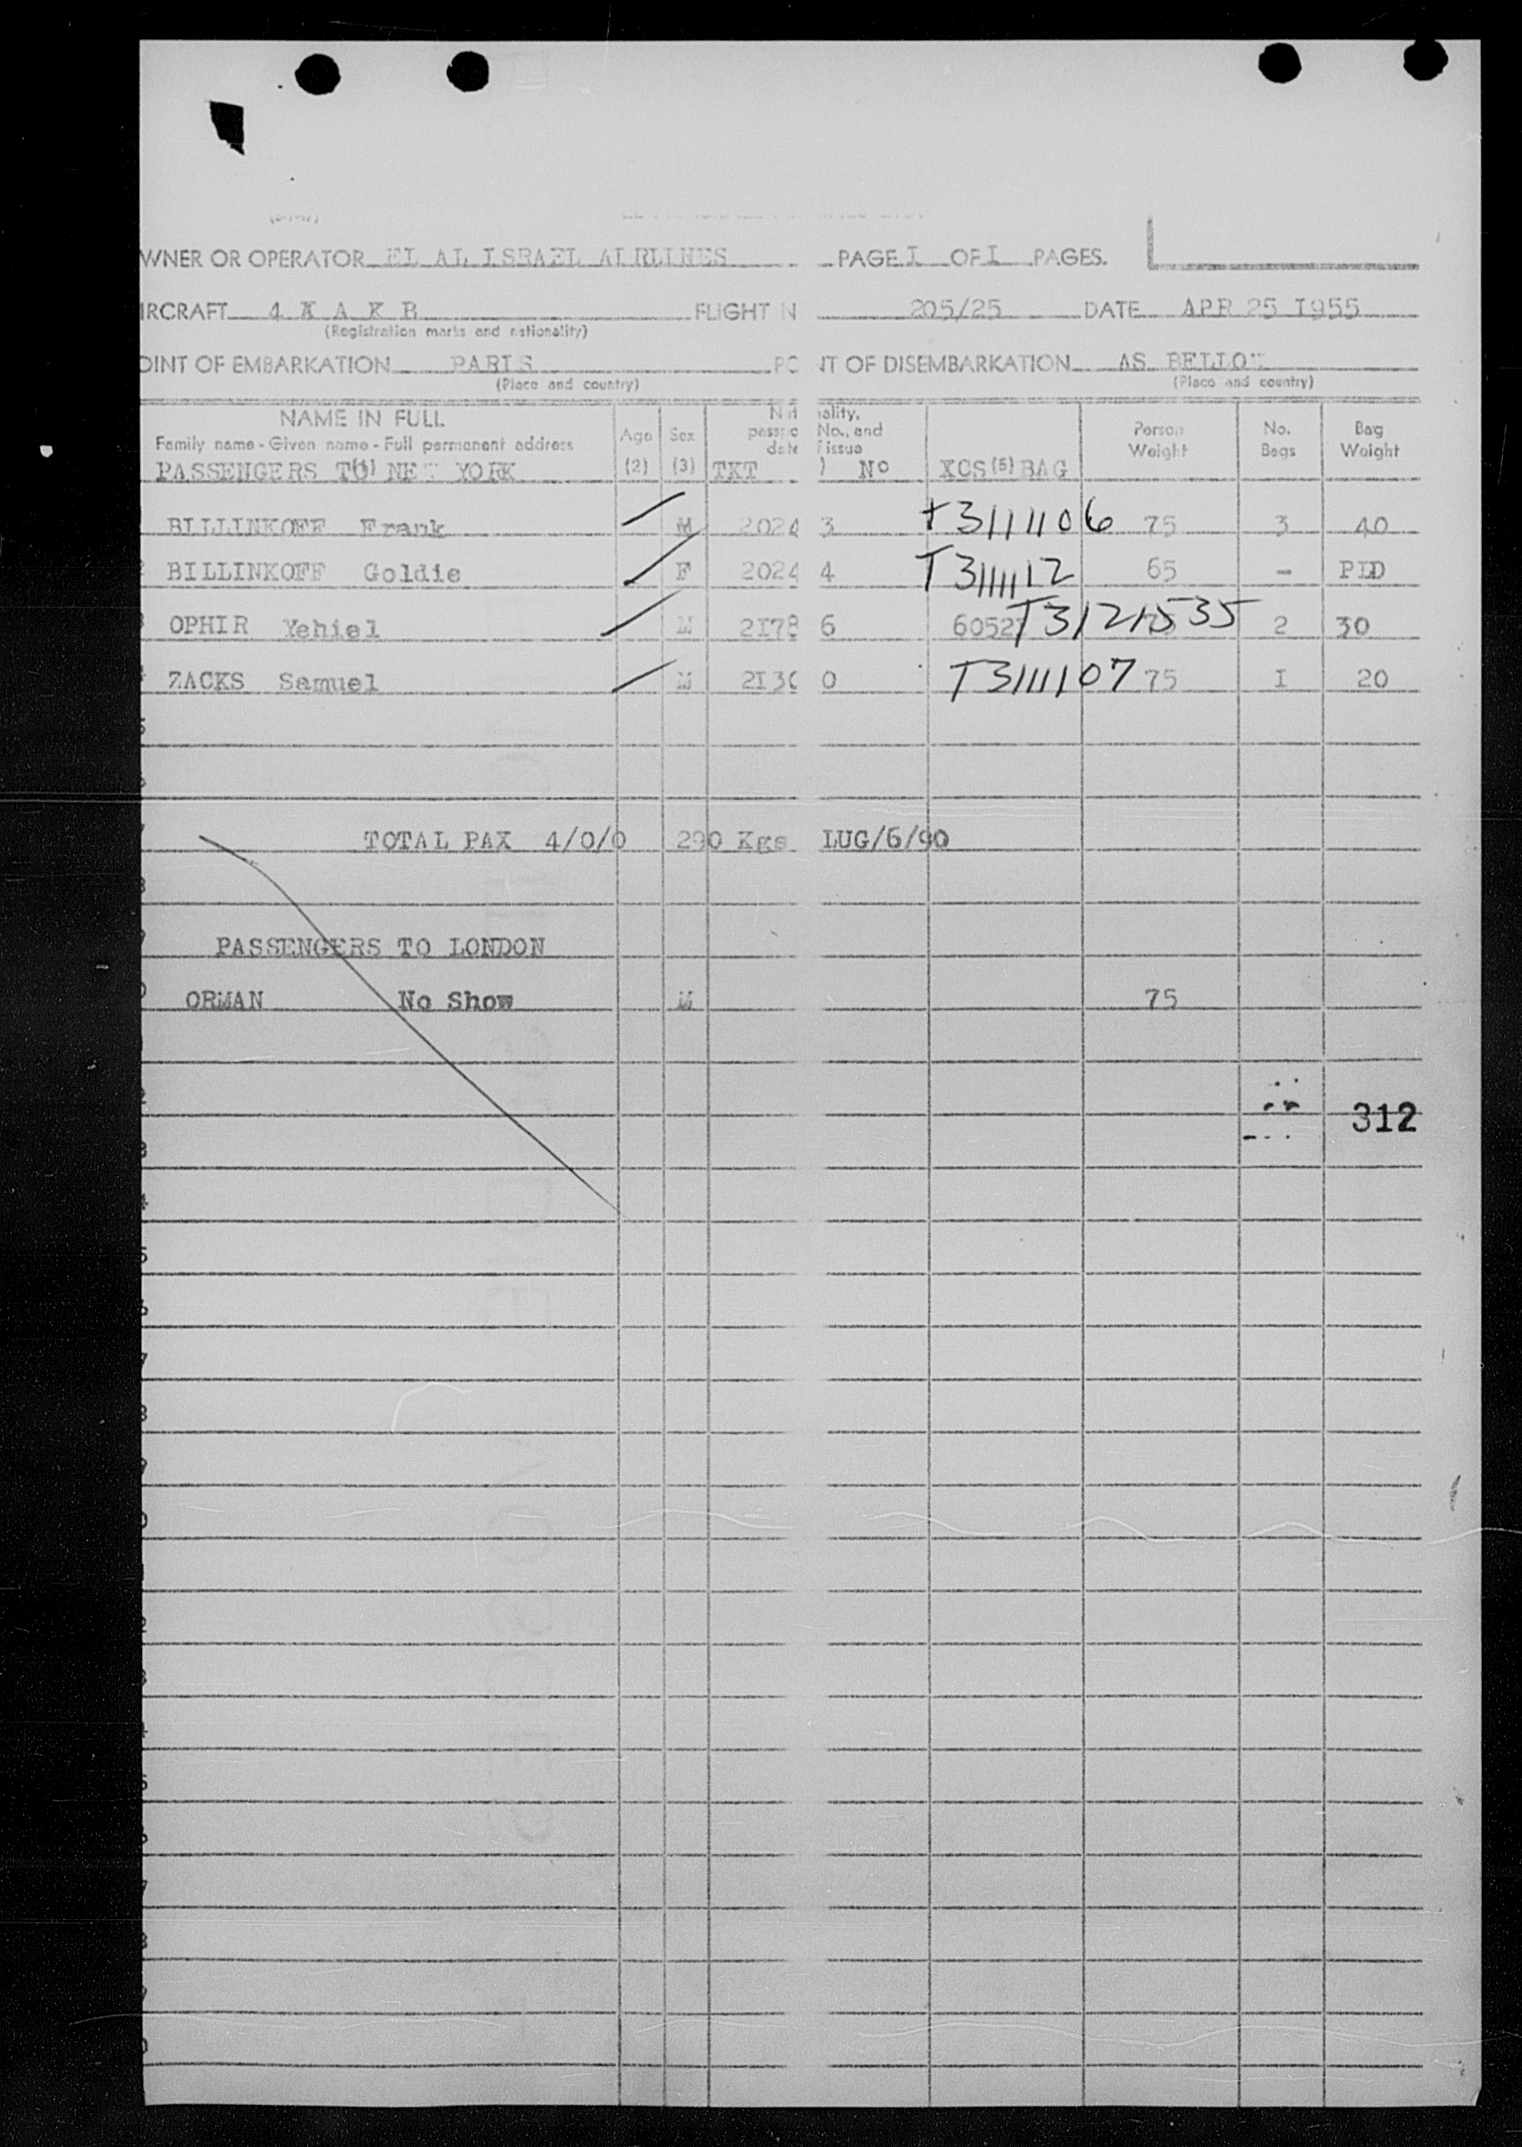 WNER OR OPERATOR EL AL ISRAEL AIRLINES PAGE I OF I PAGES.
IRCRAFT 4 X A K B FLIGHT N 205/25 DATE APR 25 1955
(Registration marks and nationality)
OINT OF EMBARKATION PARIS PO NT OF DISEMBARKATION AS BELLOW
(Place and country) (Place and country)
NAME IN FULL
Family name - Given name - Full permanent address Age Sex passpo No., and date f issue Person Weight No. Bags Bag Weight
PASSENGERS TO NEW YORK (1) (2) (3) TKT ) No XCS (5) BAG
BILLINKOFF Frank M 2024 3 T3111106 75 3 40
BILLINKOFF Goldie F 2024 4 T3111112 65 - PLD
OPHIR Yehiel M 2178 6 6052 T3121535 2 30
ZACKS Samuel M 2130 0 T3111107 75 I 20
TOTAL PAX 4/0/0 290 Kgs LUG/6/90
PASSENGERS TO LONDON
ORMAN No Show M 75
312